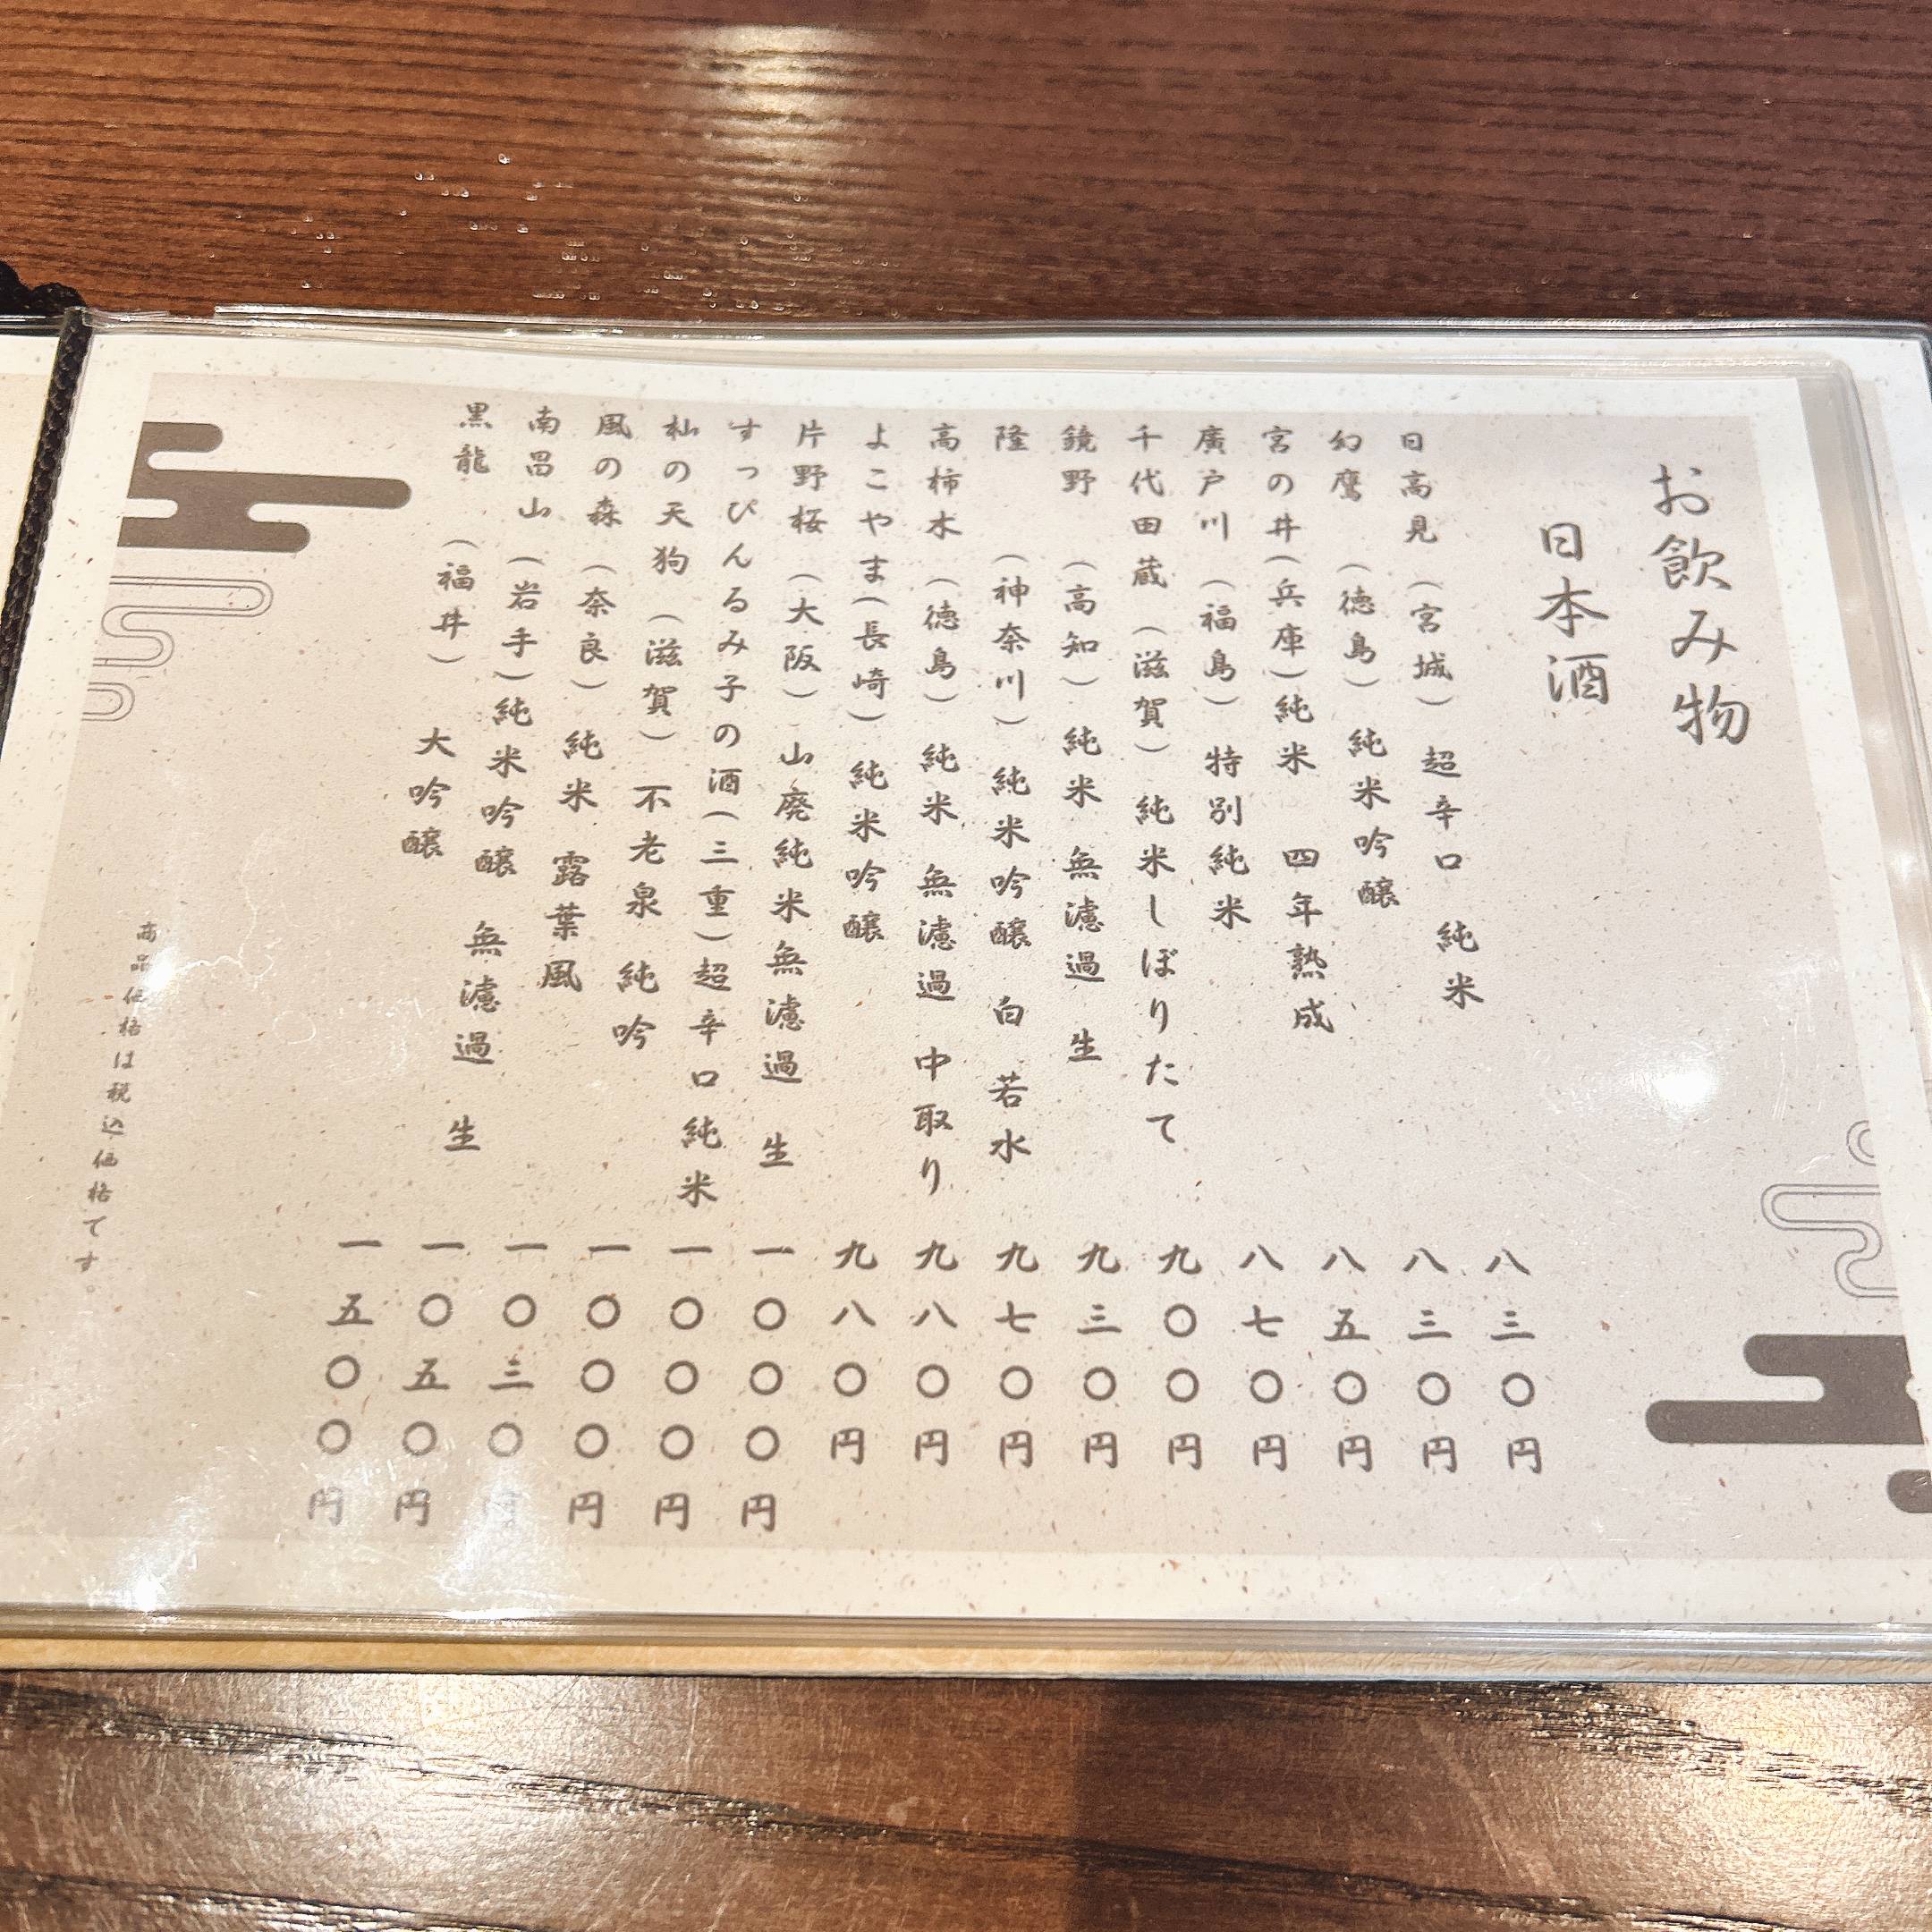 お飲み物
日本酒
日高見 （宮城） 超辛口 純米 八三〇円
幻鷹 （徳島） 純米吟醸 八三〇円
宮の井（兵庫）純米 四年熟成 八五〇円
廣戸川 （福島） 特別純米 八七〇円
千代田蔵 （滋賀） 純米しぼりたて 九〇〇円
鏡野 （高知） 純米 無濾過 生 九三〇円
隆 （神奈川） 純米吟醸 白 若水 九七〇円
高柿木 （徳島） 純米 無濾過 中取り 九八〇円
よこやま（長崎） 純米吟醸 九八〇円
片野桜 （大阪） 山廃純米無濾過 生 一〇〇〇円
すっぴんるみ子の酒（三重）超辛口純米 一〇〇〇円
杣の天狗 （滋賀） 不老泉 純吟 一〇〇〇円
風の森 （奈良） 純米 露葉風 一〇三〇円
南昌山 （岩手）純米吟醸 無濾過 生 一〇五〇円
黒龍 （福井） 大吟醸 一五〇〇円
商品価格は税込価格です。